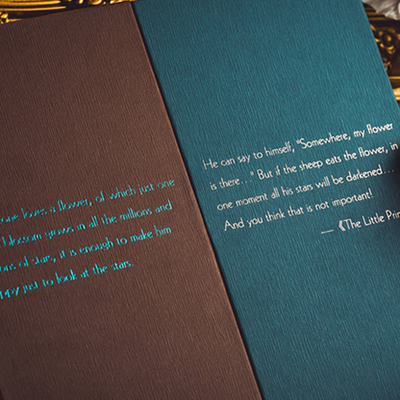 one loves a flower, of which just one
blossom grows in all the millions and
of stars, it is enough to make him
just to look at the stars.
He can say to himself, "Somewhere, my flower
is there..." But if the sheep eats the flower, in
one moment all his stars will be darkened...
And you think that is not important!
— 《The Little